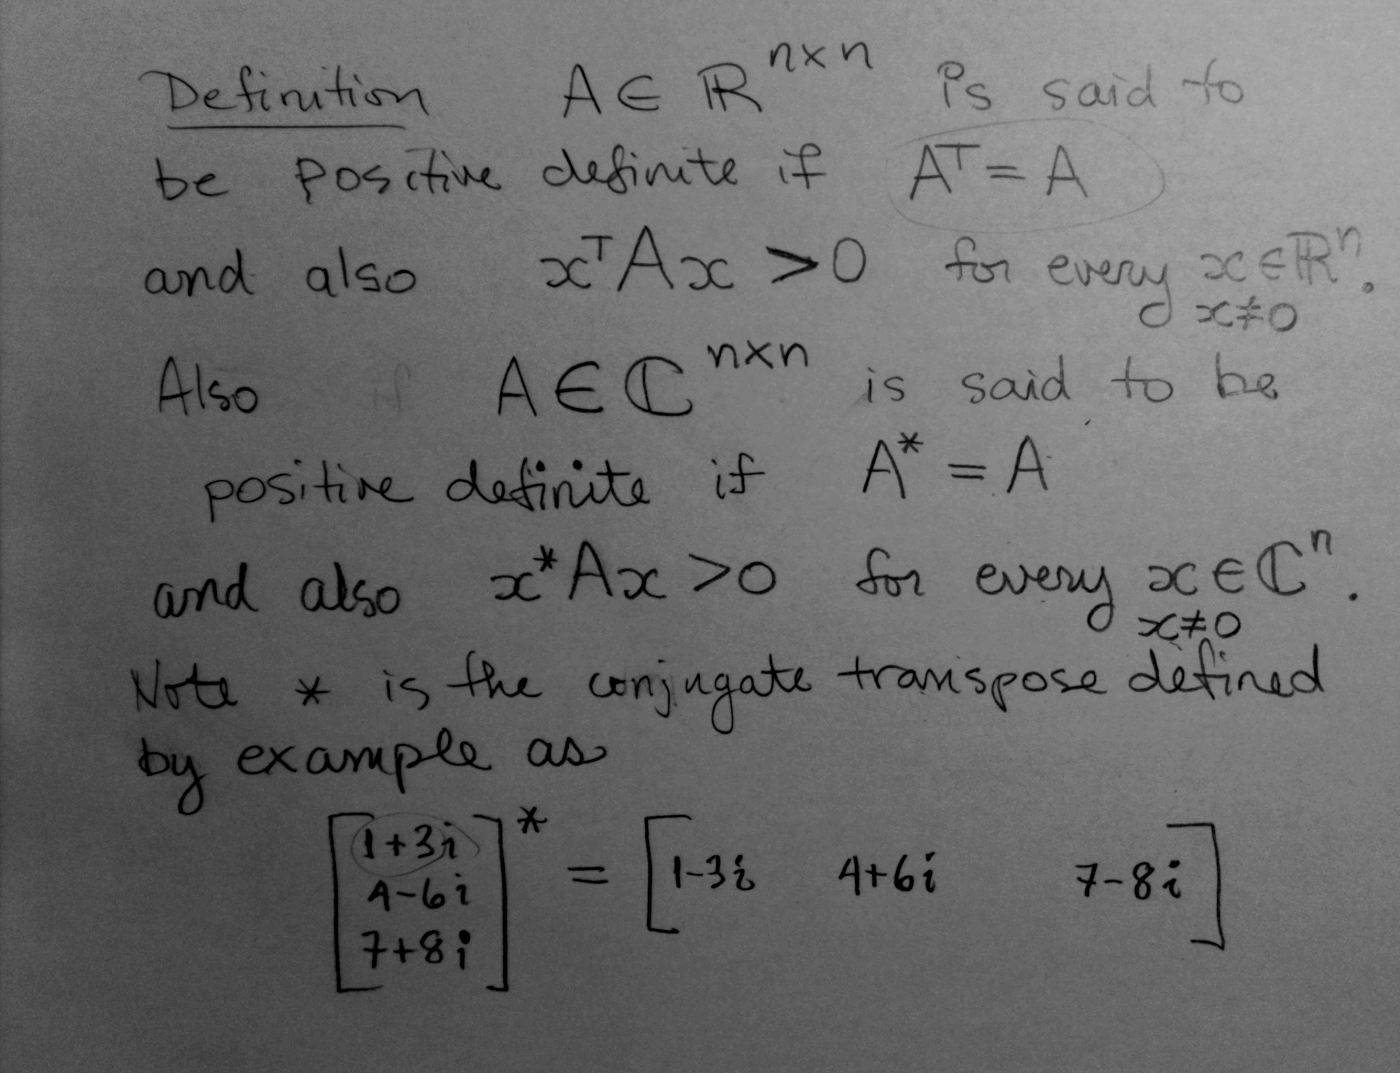 Definition A ∈ ℝⁿˣⁿ is said to
be positive definite if Aᵀ = A
and also xᵀAx > 0 for every x ∈ ℝⁿ.
x ≠ 0
Also if A ∈ ℂⁿˣⁿ is said to be
positive definite if A* = A
and also x*Ax > 0 for every x ∈ ℂⁿ.
x ≠ 0
Note * is the conjugate transpose defined
by example as
[1+3i
4-6i
7+8i]* = [1-3i 4+6i 7-8i]